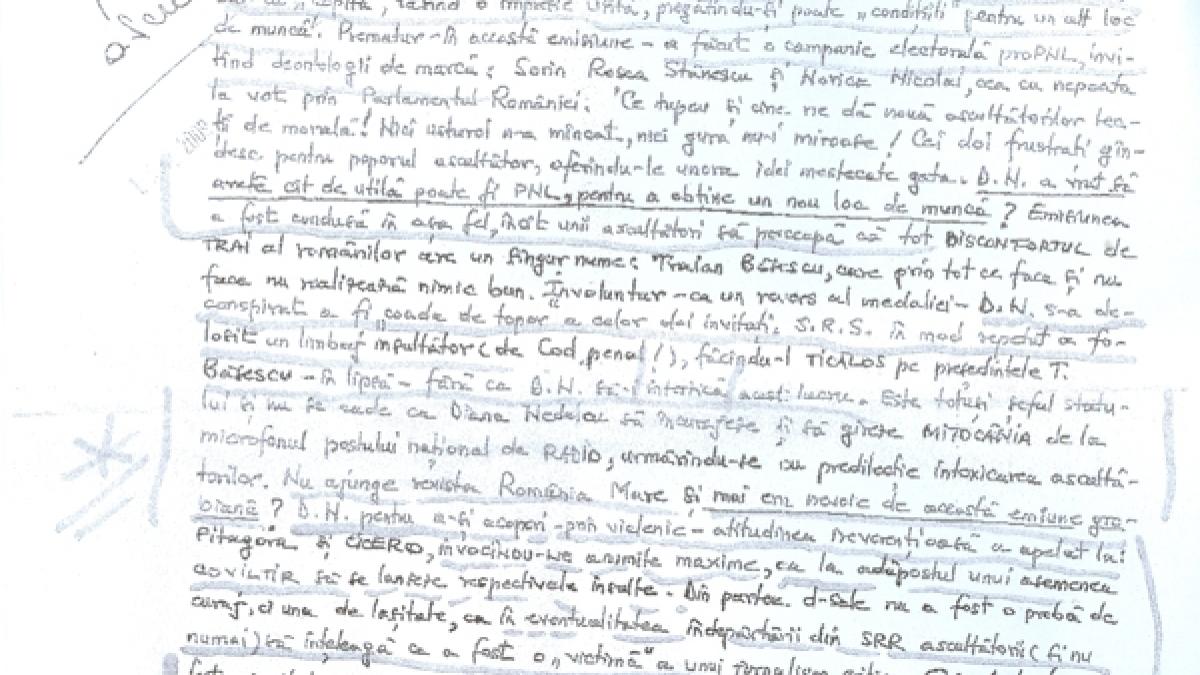 pregătindu-și poate „condiții" pentru un alt loc
de muncă. Prematur - în această emisiune - a făcut o campanie electorală proPNL, invi-
tînd deontologii de marcă: Sorin Rosca Stănescu și Norica Nicolai, cea cu nepoata
la vot prin Parlamentul României. Ce tupeu și cine ne dă nouă ascultătorilor lec-
ții de morală! Nici usturoi n-a mîncat, nici gura nu-i miroase! Cei doi frustrați gîn-
desc pentru poporul ascultător, oferindu-le unora idei mestecate gata. D.N. a vrut să
arate cît de utilă poate fi PNL, pentru a obține un nou loc de muncă? Emisiunea
a fost condusă în așa fel, încît unii ascultători să perceapă că tot DISCONFORTUL de
TRAI al românilor are un singur nume: Traian Băsescu, care prin tot ce face și nu
face nu realizează nimic bun. Involuntar - ca un revers al medaliei - D.N. s-a de-
conspirat a fi „coada de topor a celor doi invitați. S.R.S. în mod repetat a fo-
losit un limbaj insultător (de Cod penal!), făcîndu-l TICĂLOS pe președintele T.
Băsescu - în lipsă - fără ca D.N. să-i interzică acest lucru. Este totuși șeful statu-
lui și nu se cade ca Diana Nedelcu să încurajeze și să gireze MITOCĂNIA de la
microfonul postului național de RADIO, urmărindu-se cu predilecție intoxicarea ascultă-
torilor. Nu ajunge revista România Mare și mai era nevoie de această emisiune gro-
biană? D.N. pentru a-și acoperi - prin viclenie - atitudinea ireverențioasă a apelat la:
Pitagora și CICERO, invocîndu-ne anumite maxime, ca la adăpostul unui asemenea
să se lanseze respectivele insulte. Din partea d-sale nu a fost o probă de
curaj, ci una de lașitate, ca în eventualitatea îndepărtării din SRR ascultătorii (și nu
numai) să înțeleagă că a fost o „victimă" a unui